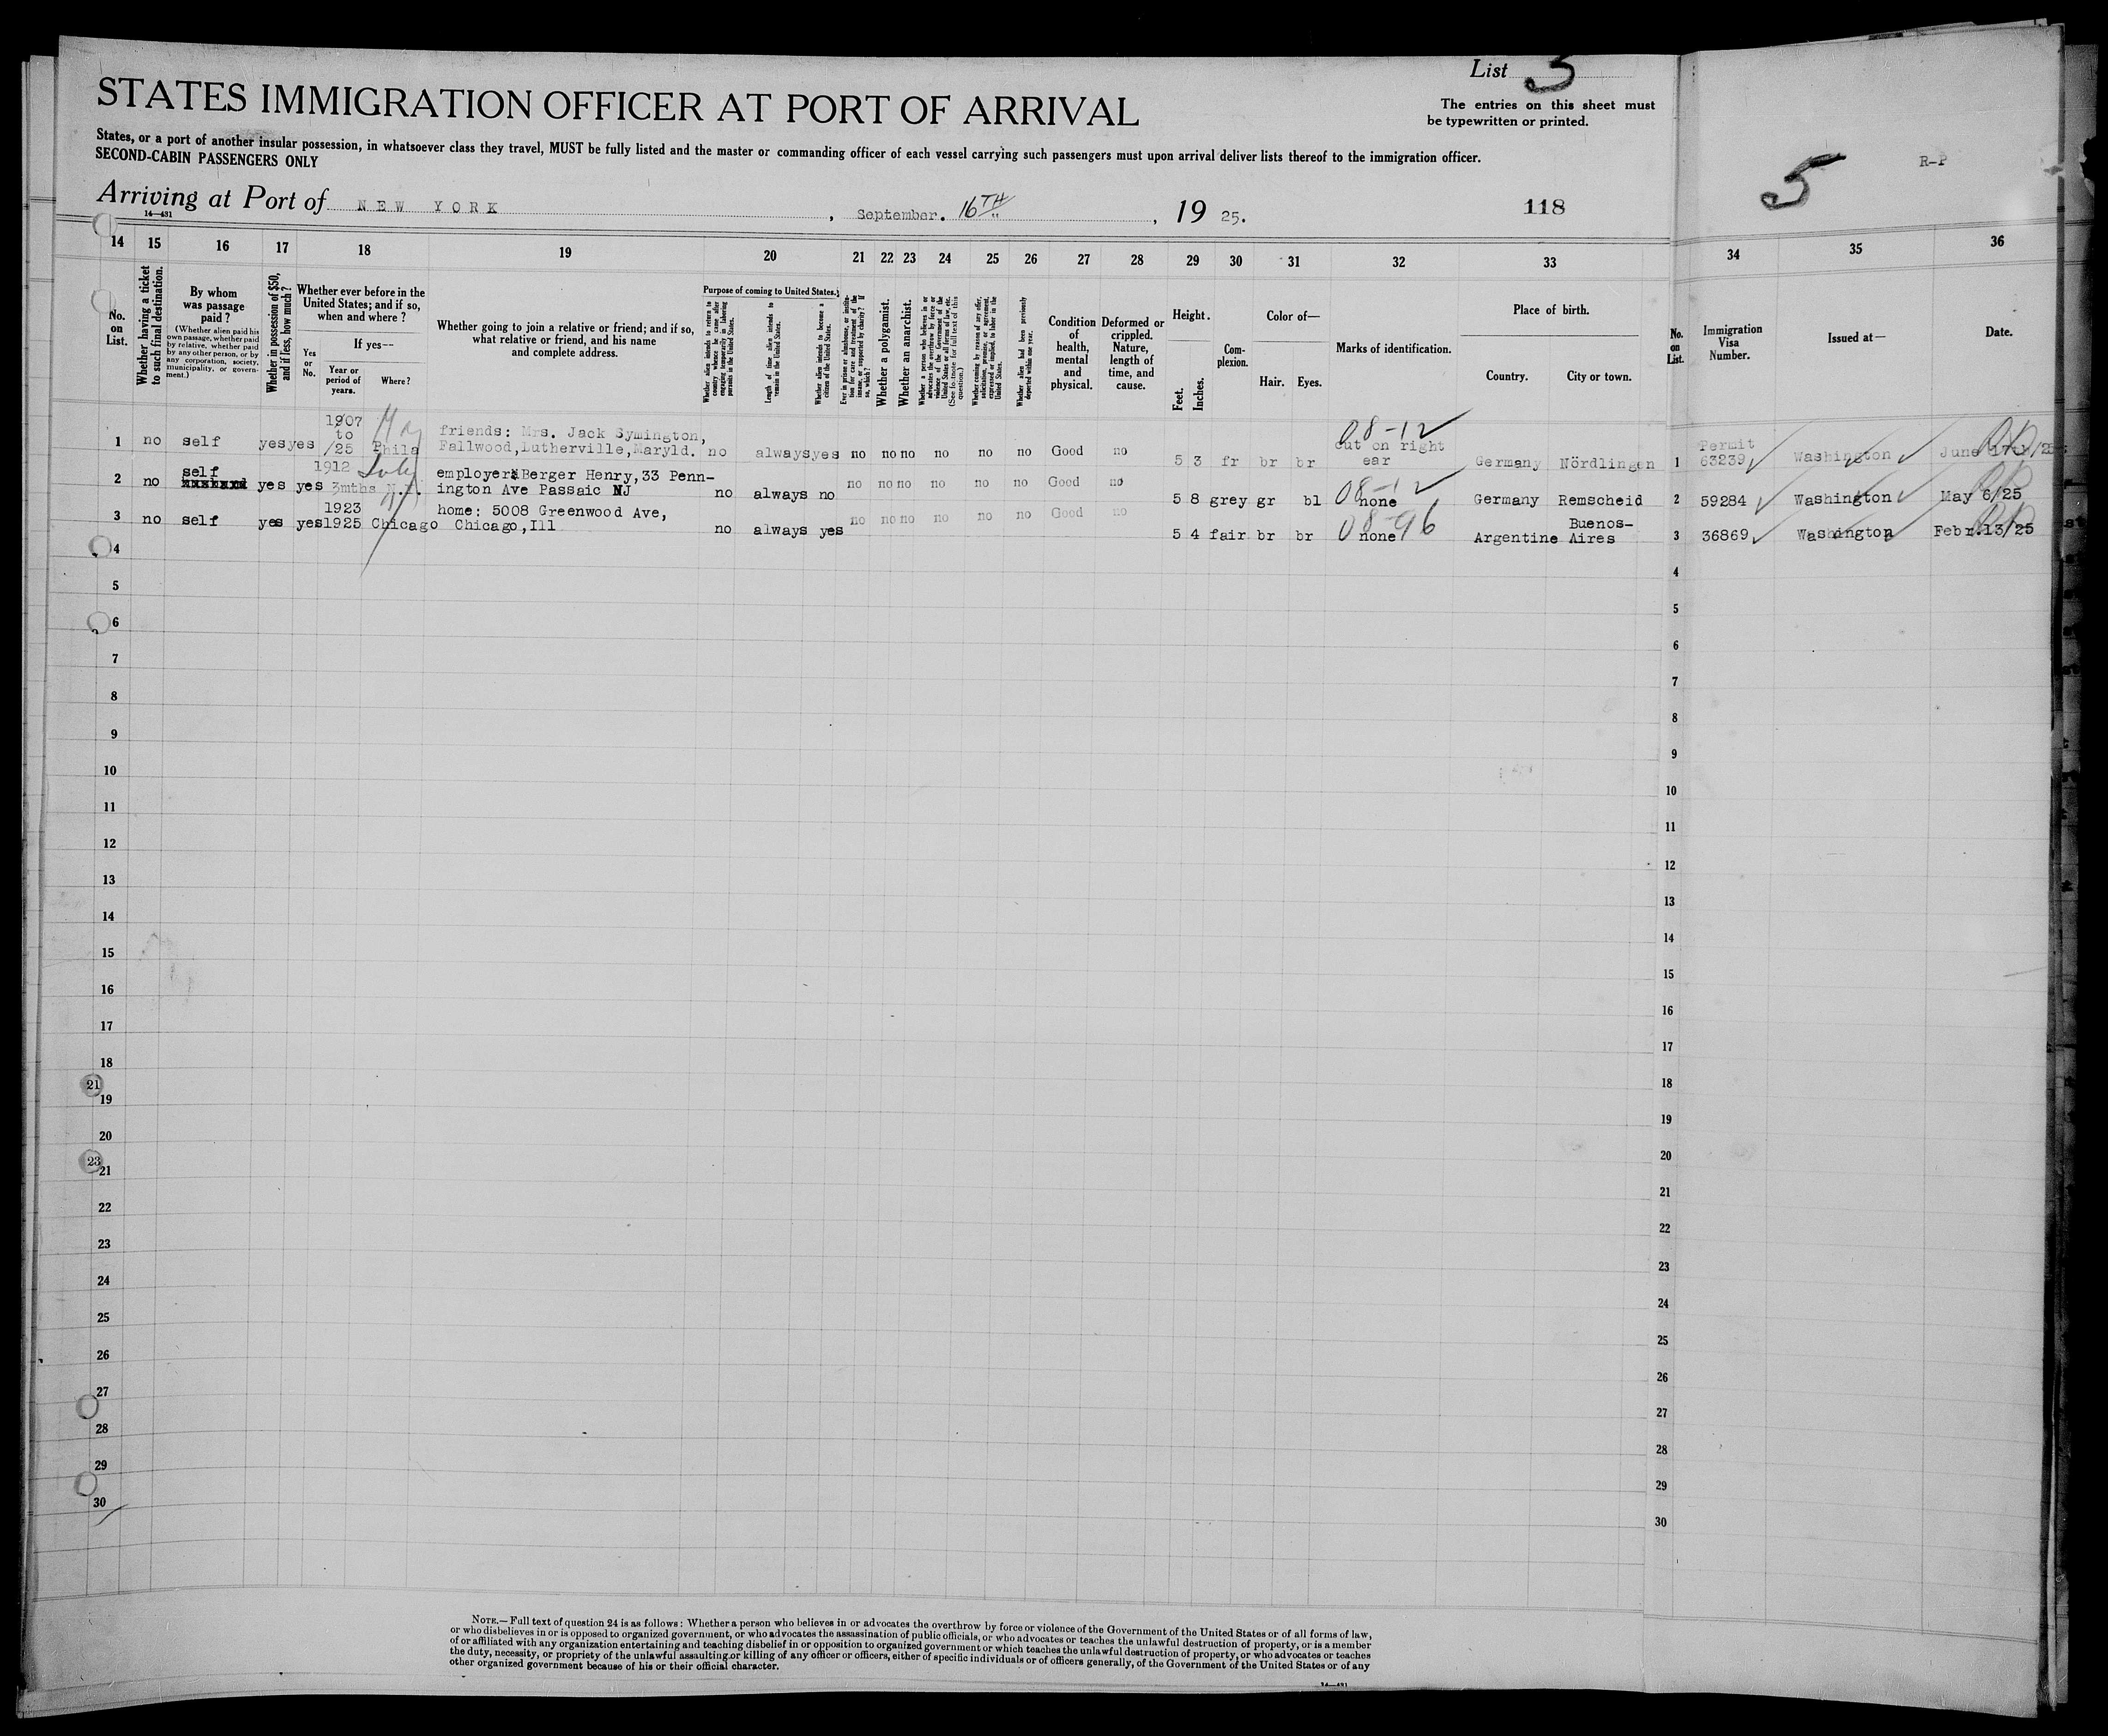 List 5
STATES IMMIGRATION OFFICER AT PORT OF ARRIVAL
The entries on this sheet must
be typewritten or printed.
States, or a port of another insular possession, in whatsoever class they travel, MUST be fully listed and the master or commanding officer of each vessel carrying such passengers must upon arrival deliver lists thereof to the immigration officer.
SECOND-CABIN PASSENGERS ONLY
5 R-P
Arriving at Port of NEW YORK, September. 16TH, 19 25.
118
14—431
14 15 16 17 18 19 20 21 22 23 24 25 26 27 28 29 30 31 32 33 34 35 36
No. on List.
Whether having a ticket to such final destination.
By whom was passage paid?
(Whether alien paid his own passage, whether paid by relative, whether paid by any other person, or by any corporation, society, municipality, or government.)
Whether in possession of $50, and if less, how much?
Whether ever before in the United States; and if so, when and where?
Yes or No.
If yes—
Year or period of years.
Where?
Whether going to join a relative or friend; and if so, what relative or friend, and his name and complete address.
Purpose of coming to United States.
Whether alien intends to return to country whence he came after engaging temporarily in laboring pursuits in the United States.
Length of time alien intends to remain in the United States.
Whether alien intends to become a citizen of the United States.
Ever in prison or almshouse, or institution for care and treatment of the insane, or supported by charity? If so, which?
Whether a polygamist.
Whether an anarchist.
Whether a person who believes in or advocates the overthrow by force or violence of the Government of the United States or all forms of law, etc. (See footnote for full text of this question.)
Whether coming by reason of any offer, solicitation, promise, or agreement, expressed or implied, to labor in the United States.
Whether alien had been previously deported within one year.
Condition of health, mental and physical.
Deformed or crippled. Nature, length of time, and cause.
Height.
Feet. Inches.
Complexion.
Color of—
Hair. Eyes.
Marks of identification.
Place of birth.
Country. City or town.
No. on List.
Immigration Visa Number.
Issued at—
Date.
1 no self yes yes 1907 to /25 Phila friends: Mrs. Jack Symington, Fallwood,Lutherville,Maryld. no always yes no no no no no no Good no 5 3 fr br br 08-12 cut on right ear Germany Nördlingen 1 Permit 63239 Washington June 17
2 no self yes yes 1912 3mths N.J. employer: Berger Henry,33 Pennington Ave Passaic NJ no always no no no no no no no Good no 5 8 grey gr bl 08-12 none Germany Remscheid 2 59284 Washington May 6/25
3 no self yes yes 1923 1925 Chicago home: 5008 Greenwood Ave, Chicago,Ill no always yes no no no no no no Good no 5 4 fair br br 08-96 none Argentine Buenos-Aires 3 36869 Washington Febr.13/25
4 4
5 5
6 6
7 7
8 8
9 9
10 10
11 11
12 12
13 13
14 14
15 15
16 16
17 17
18 18
21
19 19
20 20
23
21 21
22 22
23 23
24 24
25 25
26 26
27 27
28 28
29 29
30 30
NOTE.—Full text of question 24 is as follows: Whether a person who believes in or advocates the overthrow by force or violence of the Government of the United States or of all forms of law,
or who disbelieves in or is opposed to organized government, or who advocates the assassination of public officials, or who advocates or teaches the unlawful destruction of property, or is a member
of or affiliated with any organization entertaining and teaching disbelief in or opposition to organized government or which teaches the unlawful destruction of property, or who advocates or teaches
the duty, necessity, or propriety of the unlawful assaulting or killing of any officer or officers, either of specific individuals or of officers generally, of the Government of the United States or of any
other organized government because of his or their official character.
14—431